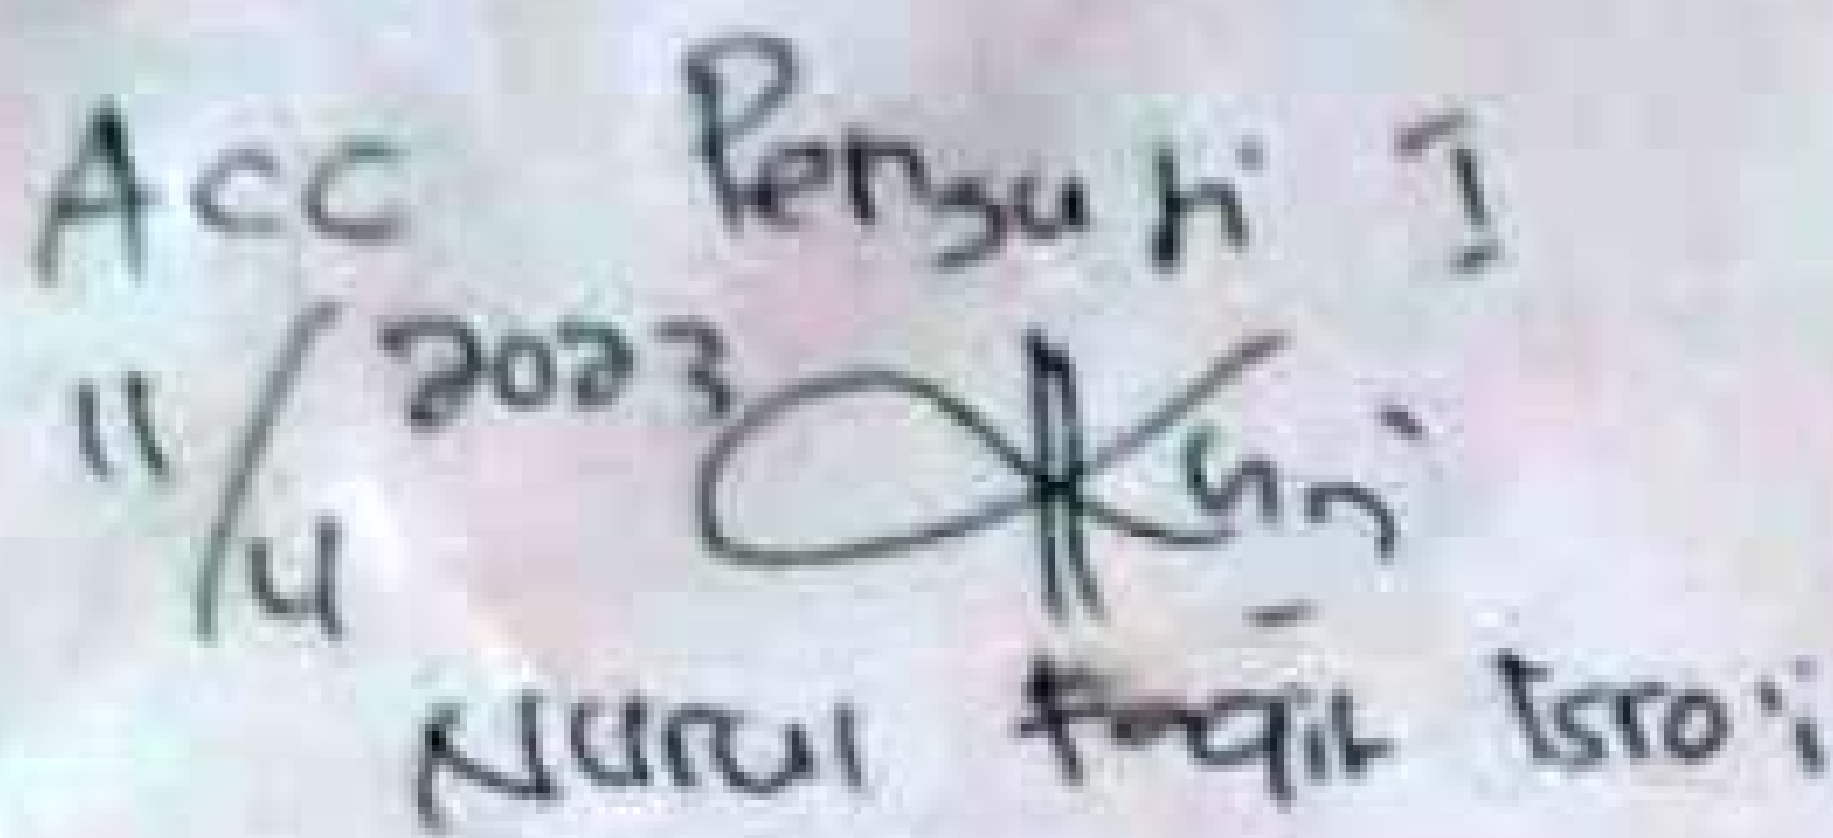 Acc Penguji I
11/4 2023
Nurul Faqih Isro'i